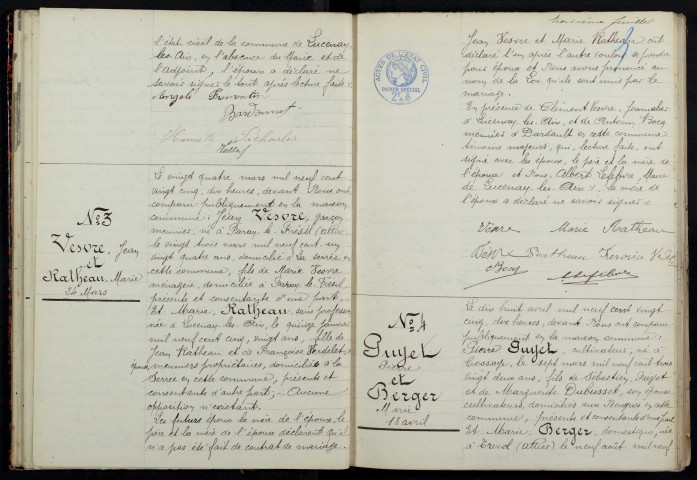 l'état civil de la commune de Lucenay-
les-Aix, en l'absence du Maire et de
l'Adjoint, l'épouse a déclaré ne
savoir signer le tout après lecture faite.
Bardonnet
N° 3
Vesvre, Jean
et
Ratheau, Marie
24 Mars
Le vingt quatre mars mil neuf cent
vingt cinq, dix heures, devant Nous ont
comparu publiquement en la maison
commune : Jean Vesvre, garçon
meunier, né à Paray-le-Frésil (Allier)
le vingt trois mars mil neuf cent un
vingt quatre ans, domicilié à la Serrée en
cette commune, fils de Marie Vesvre
ménagère, domiciliée à Paray-le-Frésil
présente et consentante d'une part.
Et Marie Ratheau, sans profession
née à Lucenay-les-Aix, le quinze janvier
mil neuf cent cinq, vingt ans, fille de
Jean Ratheau et de Françoise Verdelet,
époux, meuniers propriétaires, domiciliés à la
Serrée en cette commune, présents et
consentants d'autre part ; Aucune
opposition n'existant.
Les futurs époux la mère de l'époux le
père et la mère de l'épouse déclarent qu'il
n'a pas été fait de contrat de mariage.
troisième feuillet
3
Jean Vesvre et Marie Ratheau ont
déclaré l'un après l'autre vouloir se prendre
pour époux et Nous avons prononcé au
nom de la Loi qu'ils sont unis par le
mariage.
En présence de Clément Vesvre, journalier
à Lucenay-les-Aix, et de Antonin Bocq
meunier à Dardault en cette commune
témoins majeurs, qui, lecture faite, ont
signé avec les époux, le père et la mère de
l'épouse et Nous, Albert Lefebvre, Maire
de Lucenay-les-Aix, la mère de
l'époux a déclaré ne savoir signer.
ACTES DE L'ÉTAT CIVIL
PAPIER SPÉCIAL
Vesvre Marie Ratheau
Vesvre Ratheau
Bocq A Lefebvre
N° 4
Guyet
Pierre
et
Berger
Marie
18 avril
Le dix huit avril mil neuf cent vingt
cinq, dix heures, devant Nous ont comparu
publiquement en la maison commune :
Pierre Guyet, cultivateur, né à
Cossaye, le sept mars mil neuf cent trois
vingt deux ans, fils de Sébastien Guyot
et de Marguerite Dubusset, son épouse
cultivateurs, domiciliés aux Rougeux en cette
commune, présents et consentants d'une part
Et Marie Berger, domestique, née
à Trevol (Allier) le neuf août mil neuf